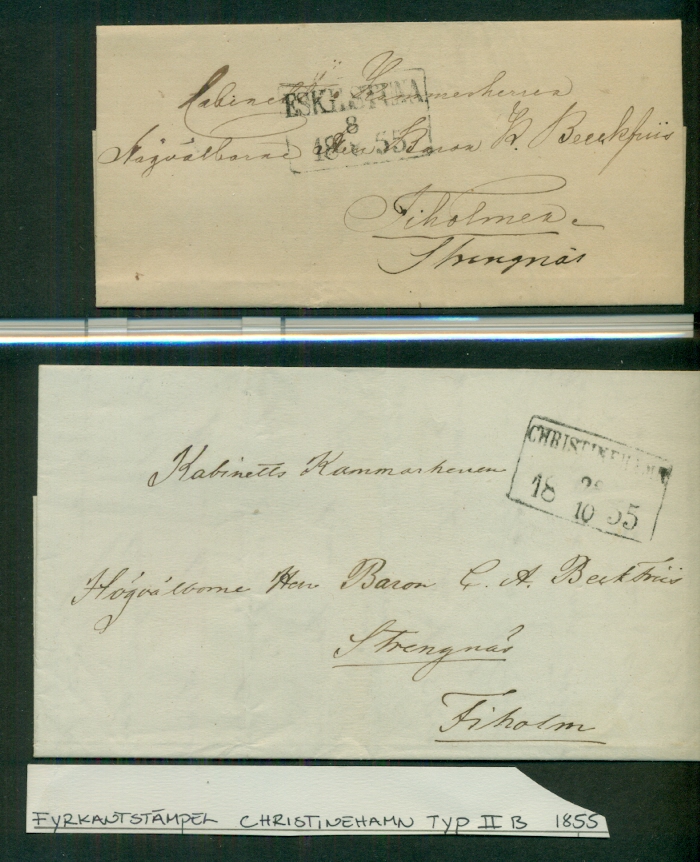 Cabinetts Kammerherren
ESKILSTUNA
8
18 55
Högvälborne Herr Baron Beckfriis
Fiholmen
Strengnäs
CHRISTINEHAMN
18 10 55
Kabinetts Kammarherren
Högvälborne Herr Baron C. A. Beckfriis
Strengnäs
Fiholm
FYRKANTSTÄMPEL CHRISTINEHAMN TYP II B 1855